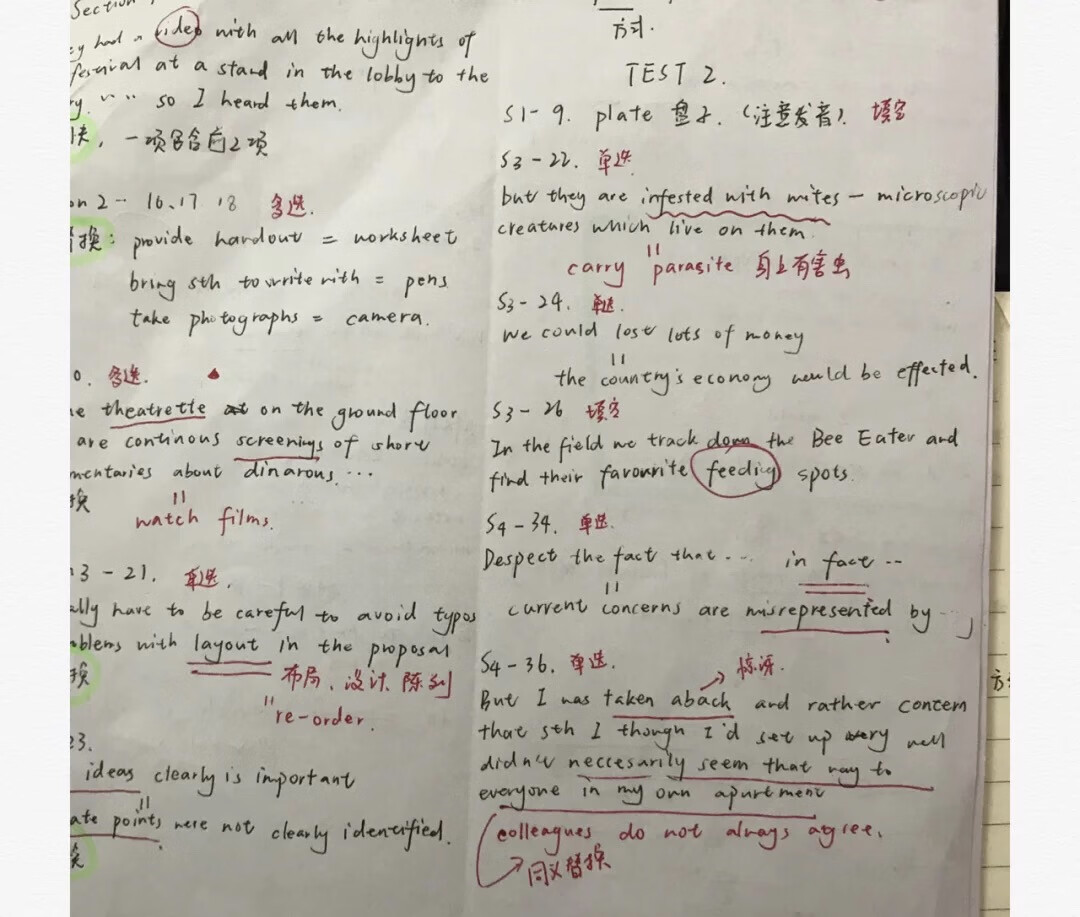 Section
ey had a video with all the highlights of
festival at a stand in the lobby to the
ry. " " so I heard them.
快, 一项含有2项
on 2 - 16、17 18 多选.
替换: provide handout = worksheet
bring sth to write with = pens
take photographs = camera.
0. 多选.
e theatrette on the ground floor
are continous screenings of short
mentaries about dinarous ...
=
换 watch films.
3 - 21. 单选.
ally have to be careful to avoid typos
oblems with layout in the proposal
换 布局、设计、陈列
= re-order
23.
ideas clearly is important
=
ate points were not clearly identified.
换
方式.
TEST 2.
S1-9. plate 盘子. (注意发音). 填空
S3-22. 单选
but they are infested with mites - microscopic
creatures which live on them.
=
carry parasite 身上有害虫
S3-24. 单选.
we could lost lots of money
=
the country's economy would be effected.
S3-26 填空
In the field we track down the Bee Eater and
find their favourite feedig spots.
S4-34. 单选.
Despect the fact that ... in fact ..
=
current concerns are misrepresented by
S4-36. 单选. 惊讶.
But I was taken aback and rather concern
that sth I though I'd set up very well
didn't neccesarily seem that way to
everyone in my own apartment
colleagues do not always agree.
同义替换
方